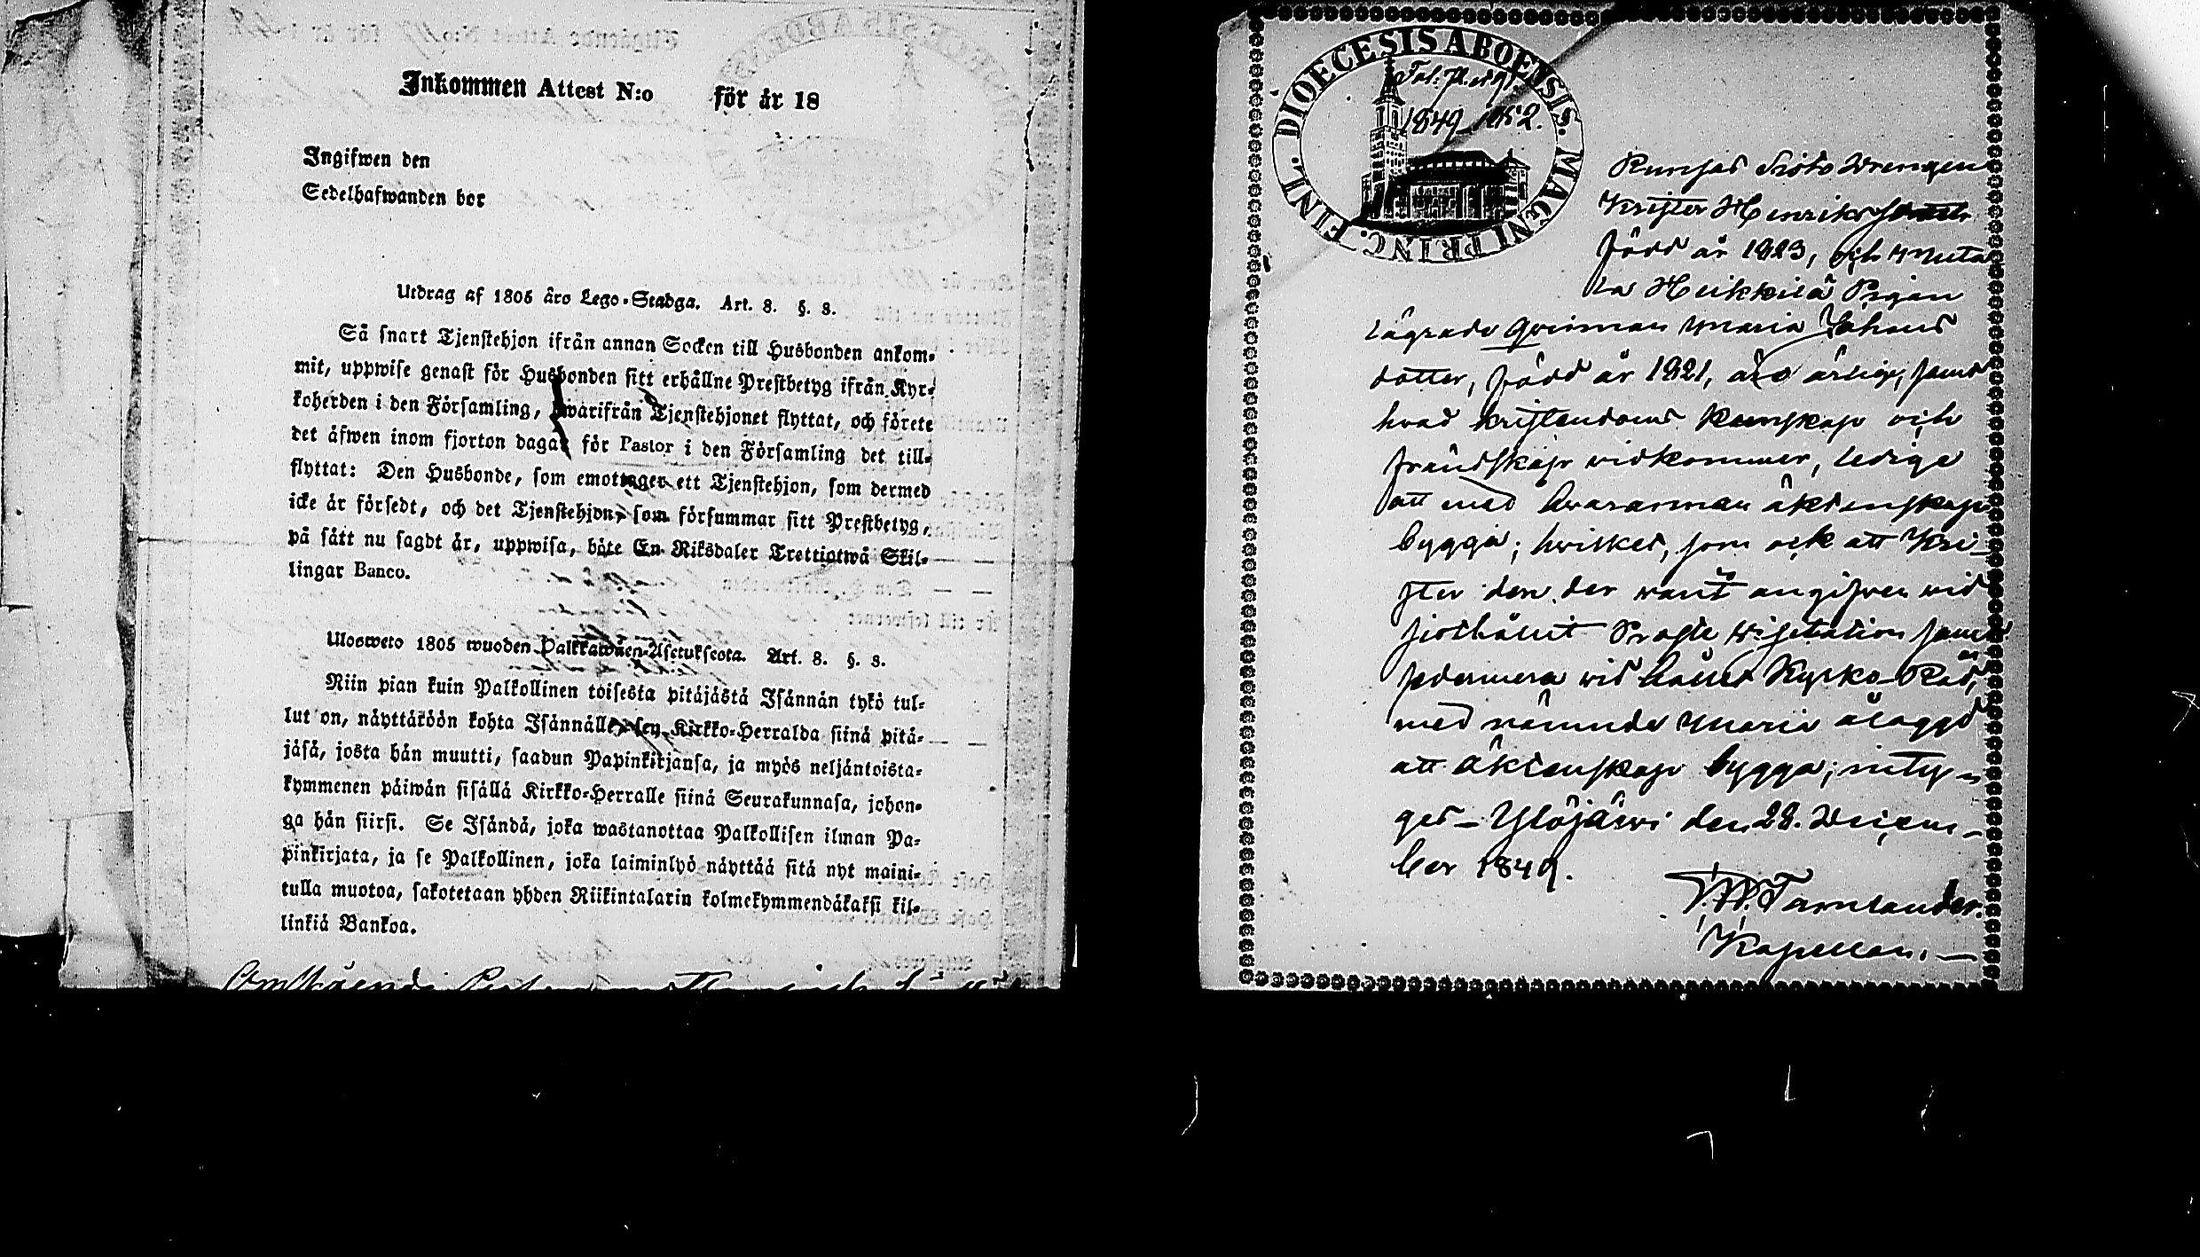 Inkommen Attest N:o för år 18
Ingifwen den
Sedelhafwanden bor
Utdrag af 1805 års Lego-Stadga. Art. 8. §. 8.
Så snart Tjenstehjon ifrån annan Socken till Husbonden ankom-
mit, uppwise genast för Husbonden sitt erhållne Prestbetyg ifrån Kyr-
koherden i den Församling, hwarifrån Tjenstehjonet flyttat, och förete
det äfwen inom fjorton dagar för Pastor i den Församling det till-
flyttat: Den Husbonde, som emottager ett Tjenstehjon, som dermed
icke är försedt, och det Tjenstehjon, som försummar sitt Prestbetyg,
på sätt nu sagdt är, uppwisa, böte En Riksdaler Trettiotwå Skil-
lingar Banco.
Ulosweto 1805 wuoden Palkkawäen-Asetuksesta. Art. 8. §. 8.
Niin pian kuin Palkollinen toisesta pitäjästä Isännän tykö tul-
lut on, näyttäköön kohta Isännälle sen Kirkko-Herralda siinä pitä-
jäsä, josta hän muutti, saadun Papinkirjansa, ja myös neljäntoista-
kymmenen päiwän sisällä Kirkko-Herralle siinä Seurakunnasa, johon-
ga hän siirsi. Se Isändä, joka wastanottaa Palkollisen ilman Pa-
pinkirjata, ja se Palkollinen, joka laiminlyö näyttää sitä nyt maini-
tulla muotoa, sakotetaan yhden Riikintalarin kolmekymmendäkaksi kil-
linkiä Bankoa.
DIOECESIS ABOENSIS. MAGNI PRINC. FINL.
1849 1852.
Sisto Drengen
Krister Henriksson
född år 1823, och
la Heikkilä Pigan
lägrade qvinnan Maria Johans
dotter, född år 1821, äro ärlige, samt
hvad kristendoms kunskap och
frändskap widkommer, ledige
att med hvarannan äktenskap
bygga; hwilket, som ock att Kri-
ster den der warit angifwen wid
sisthållit Prosts Wisitation samt
sedermera wid hållet Kyrko-Råd,
med nämnde Maria ålaggd
att äktenskap bygga; inty-
gas – Ylöjärwi den 28. Decem-
ber 1849.
Kapellan. –